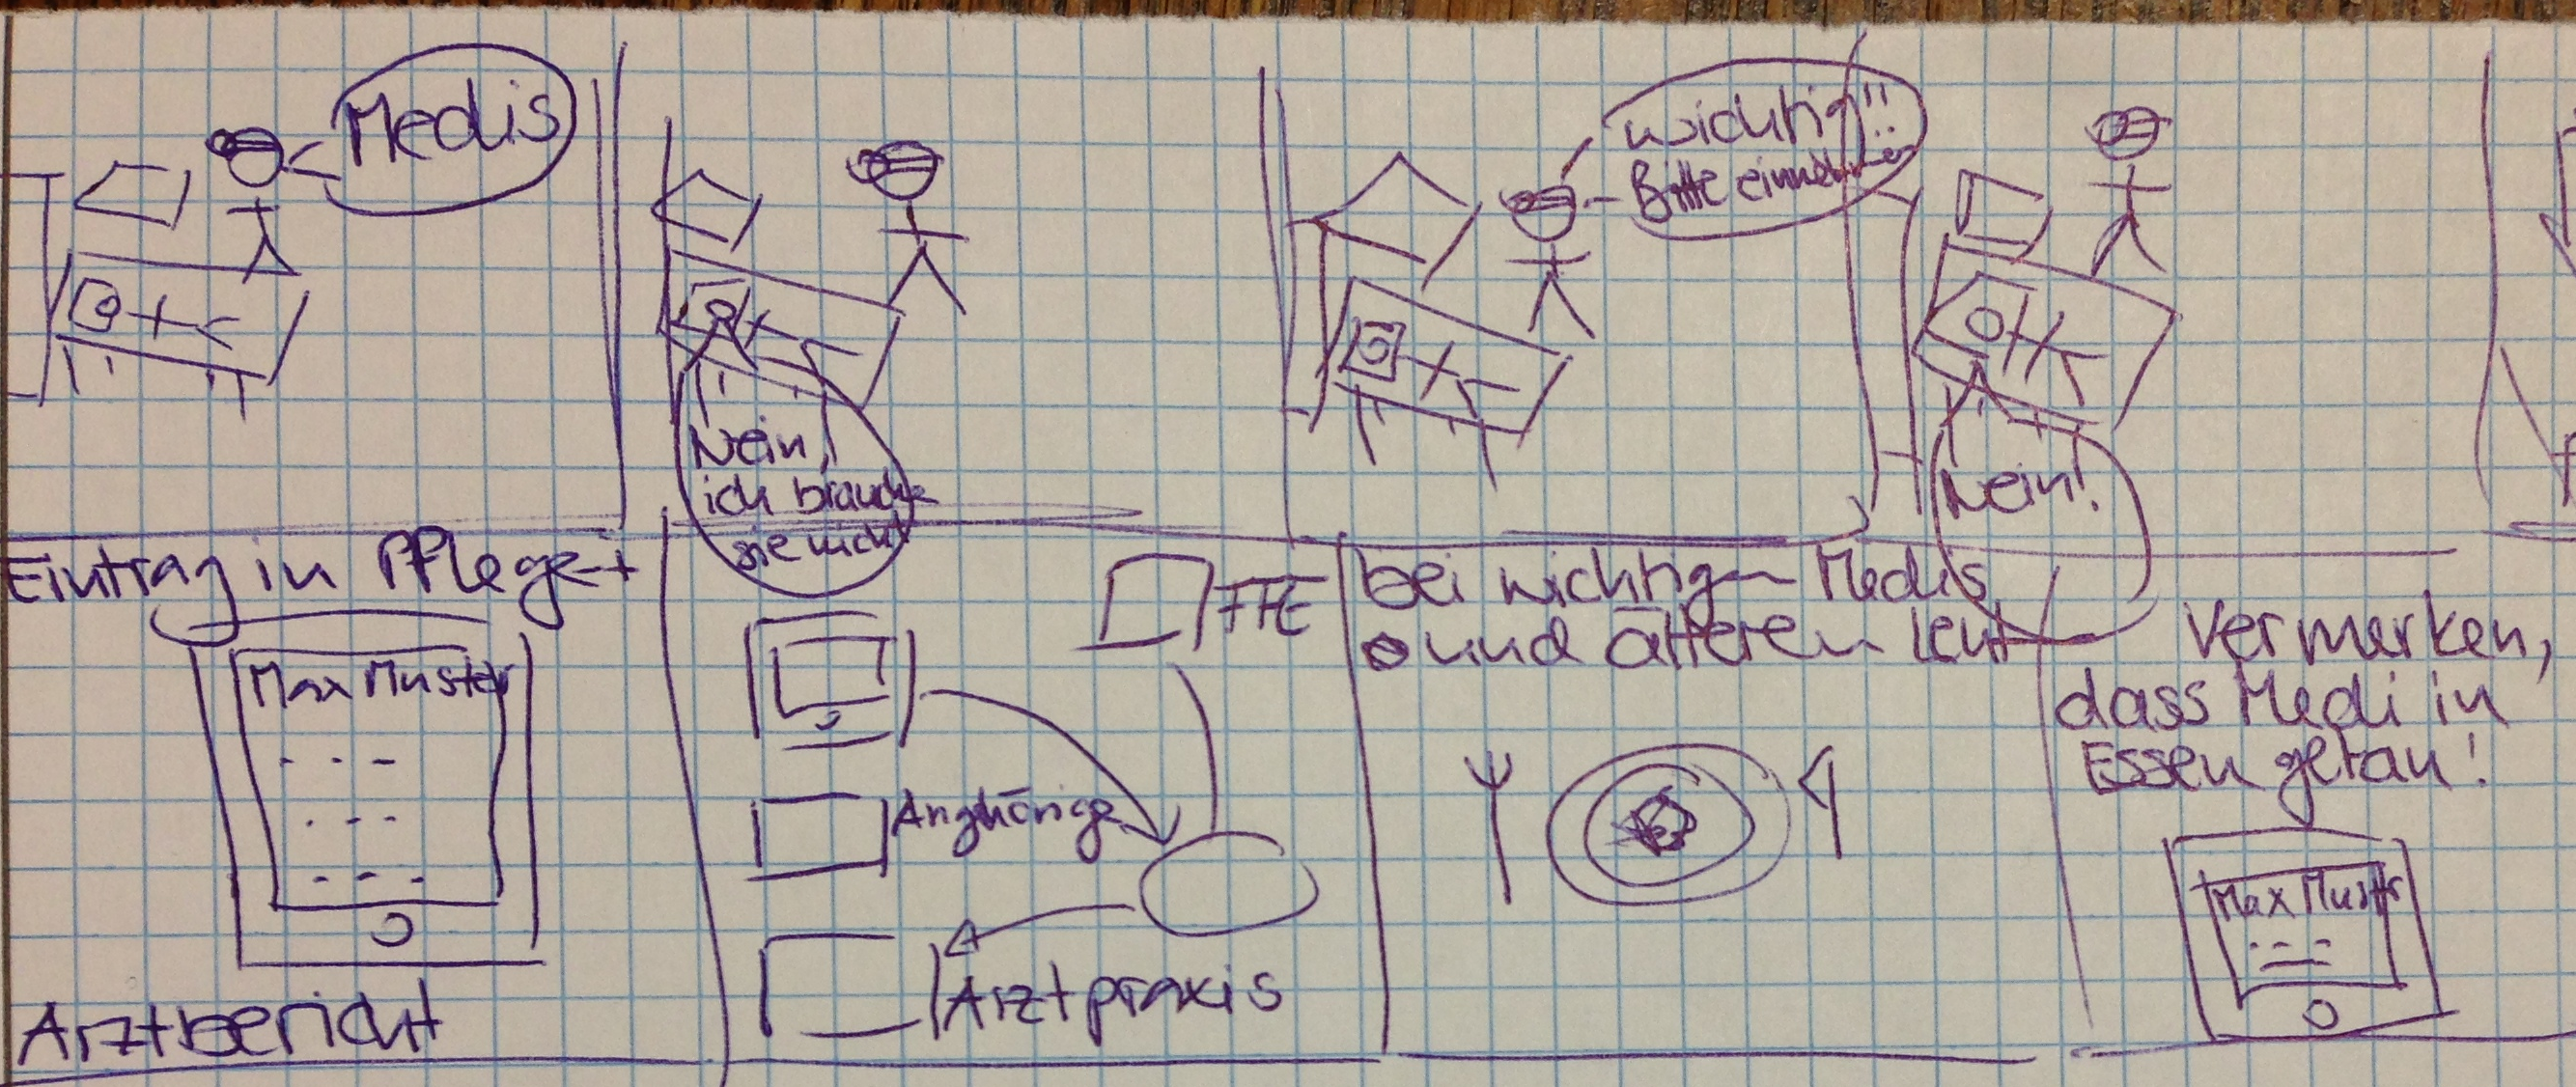 Medis
Nein,
ich brauche
sie nicht
wichtig!!
Bitte einnehmen
Nein!
Eintrag in Pflege- +
Max Muster
Arztbericht
Anghörige
Arztpraxis
bei wichtigen Medis
und älteren Leut
vermerken,
dass Medi in
Essen getan!
Max Muster